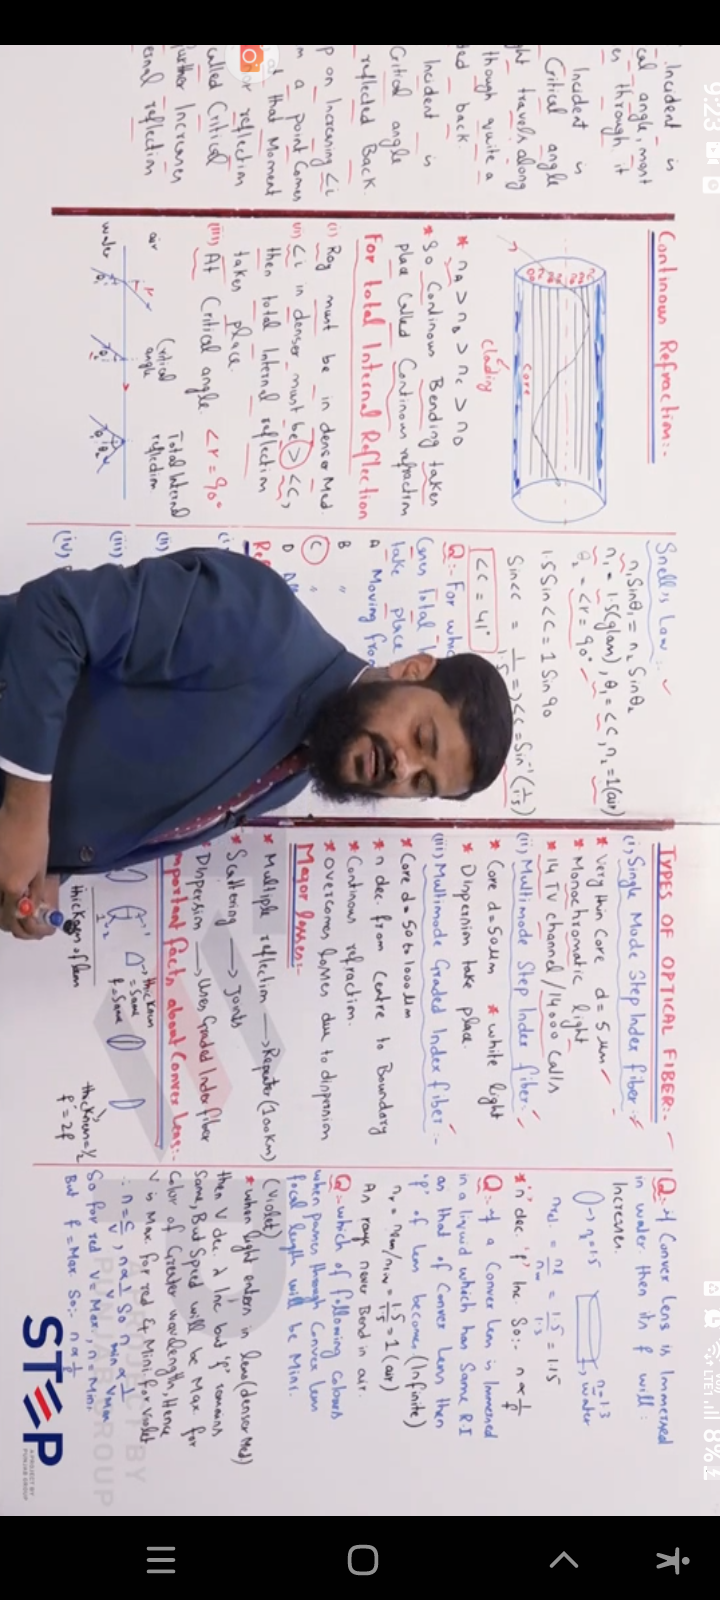 9:23
LTE1
8%
. Incident is
cal angle, most
es through it
Incident is
Critical angle
ght travels along
though quite a
ted back
Incident is
Critical angle
reflected Back.
p on Increasing <i
m a point Comes
at that Moment
or reflection
called Critical
further Increases
ernal reflection
Continous Refraction:-
core
clading
* nA > nB > nC > nD
* So Continous Bending takes
place Called Continous refraction
For total Internal Reflection
(i) Ray must be in denser Med.
(ii) <i in denser must be > <C,
then total Internal reflection
takes place.
(iii) At Critical angle. <r = 90°
air
water
Critical
angle
Total Internal
reflection
Snell's Law:-
n₁Sinθ₁ = n₂ Sinθ₂
n₁ = 1.5(glass), θ₁ = <C, n₂ = 1(air)
θ₂ = <r = 90°
1.5 Sin<C = 1 Sin 90
Sin<C = 1/1.5 => <C = Sin⁻¹(1/1.5)
<C = 41°
Q:- For whic
Cases Total I
take place
A Moving from
B "
C "
D
(i)
(ii)
(iii)
(iv)
TYPES OF OPTICAL FIBER:-
(i) Single Mode Step Index fiber:-
* Very thin Core d = 5 μm
* Monochromatic light
* 14 TV channel / 14000 Calls
(ii) Multimode Step Index fiber:-
* Core d = 50μm * white light
* Dispersion take place.
(iii) Multimode Graded Index fiber:-
* Core d = 50 to 1000μm
* n dec. from Centre to Boundary
* Continous refraction.
* overcomes losses due to dispersion
Major losses:-
* Multiple reflection → Repeater (100km)
* Scattering → Joints
* Dispersion → Uses Graded Index fiber
mportant facts about Convex Lens:-
thickness
= Same
f = Same
thickness of lens
thickness = 1/2
f = 2f
Q:- if Convex Lens is Immersed
in water then its f will:
Increases.
n = 1.5
n = 1.3
water
* n dec. 'f' Inc So:- n ∝ 1/f
Q:- if a Convex Lens is Immersed
in a liquid which has Same R.I
as that of Convex Lens then
'f' of Lens becomes (Infinite)
= 1.5/1.5 = 1 (air)
As rays never Bend in air.
Q:- which of following Colours
when passes through Convex Lens
focal length will be Mini.
(Violet)
* when light enters in lens (denser Med)
then V dec. λ Inc but 'f' remains
Same, But Speed will be Max for
Color of Greater wavelength, Hence
V is Max for red & Mini for Violet
∴ n = c/v, n ∝ 1/v So n min ∝ 1/v max
So for red V = Max, n = Mini
But f = Max So:- n ∝ 1/f
STEP
A PROJECT BY
PUNJAB GROUP
A PROJECT BY
PUNJAB GROUP